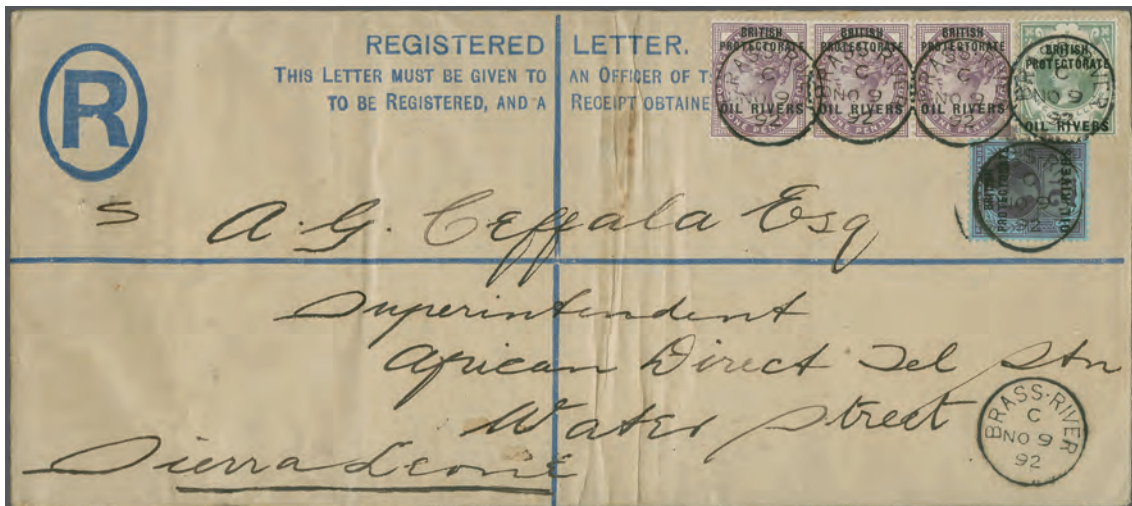 REGISTERED LETTER.
THIS LETTER MUST BE GIVEN TO AN OFFICER OF T
TO BE REGISTERED, AND A RECEIPT OBTAINE
R
BRITISH PROTECTORATE OIL RIVERS
BRITISH PROTECTORATE OIL RIVERS
BRITISH PROTECTORATE OIL RIVERS
BRITISH PROTECTORATE OIL RIVERS
BRASS-RIVER C NO 9 92
BRASS-RIVER C NO 9 92
BRASS-RIVER C NO 9 92
BRASS-RIVER C NO 9 92
BRITISH PROTECTORATE OIL RIVERS
NO 9 92
A. G. Ceffala Esq
Superintendent
African Direct Tel Stn
Water Street
Sierra Leone
BRASS-RIVER
C
NO 9
92